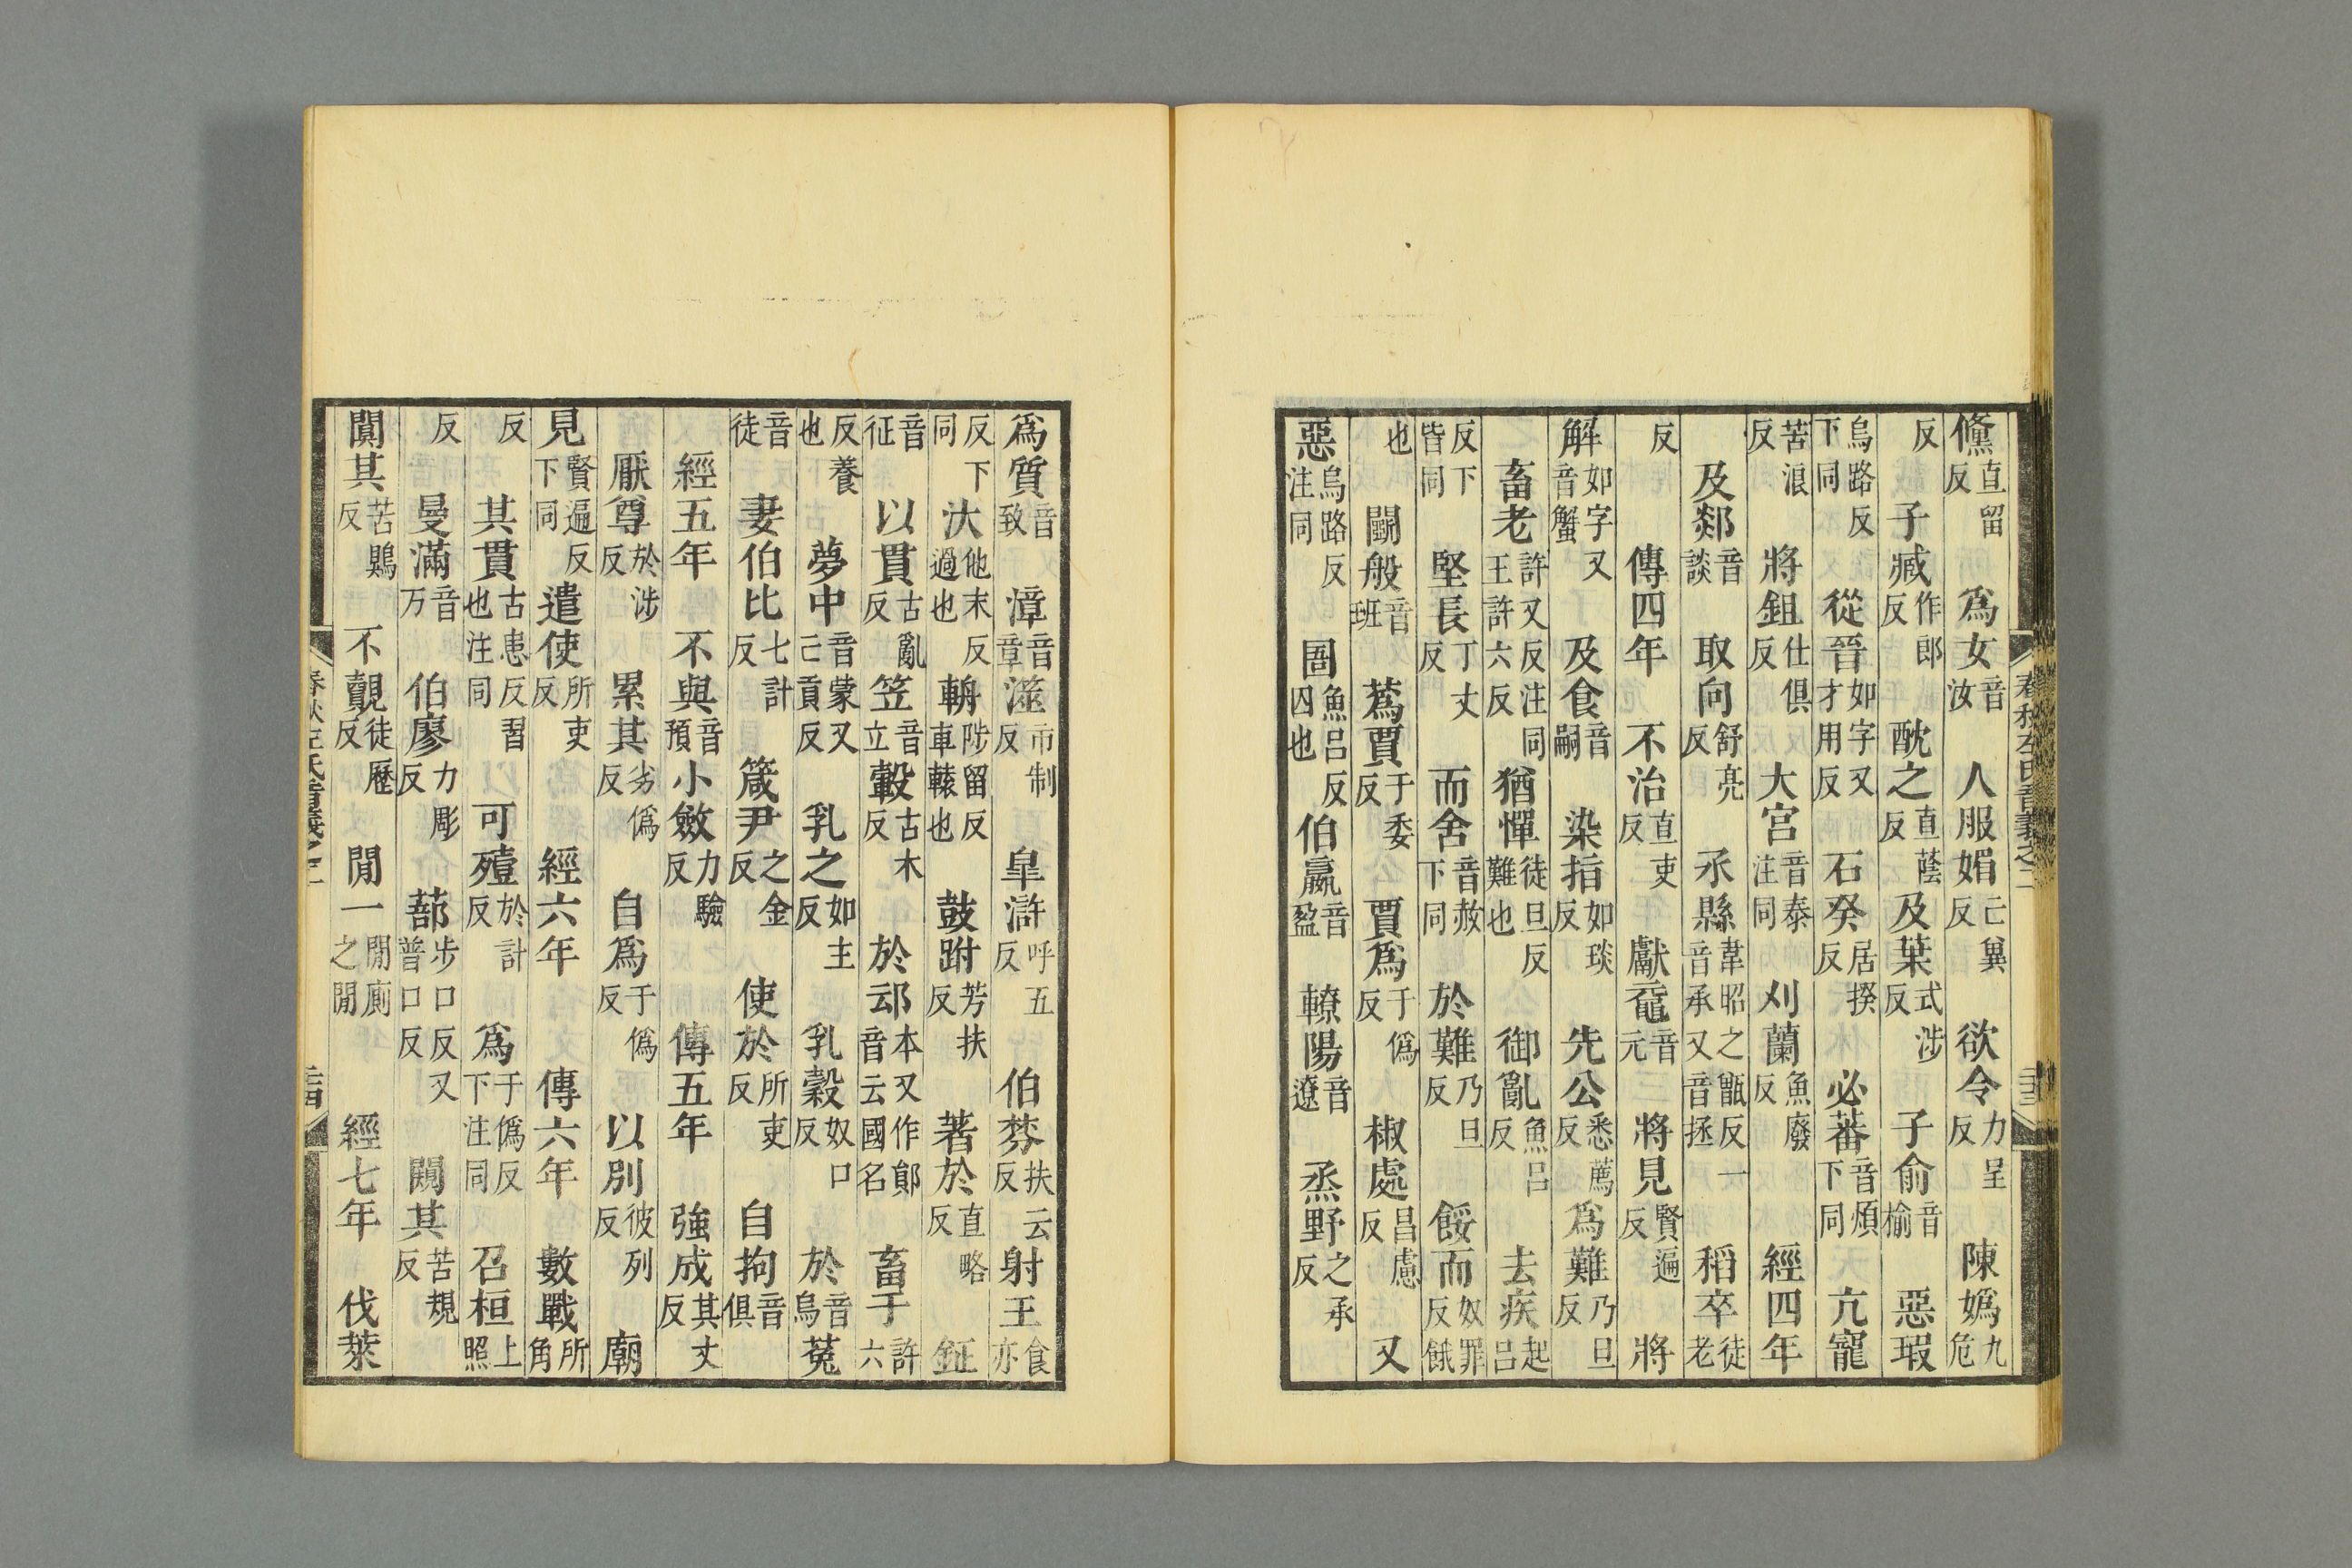 儵直留反　爲女音汝　人服媚亡冀反　欲令力呈反　陳嬀九危
反　子臧作郎反　酖之直蔭反　及葉式涉反　子俞音榆　惡瑕
烏路反下同　從晉如字又才用反　石癸居揆反　必蕃音煩下同　亢寵
苦浪反　將鉏仕俱反　大宮音泰注同　刈蘭魚廢反　經四年
及郯音談　取向舒亮反　氶縣韋昭之甑反一音承又音拯　稻卒徒老
反　傳四年　不治直吏反　獻黿音元　將見賢遍反　將
解如字又音蟹　及食音嗣　染指如琰反　先公悉薦反　爲難乃旦反
畜老許又反注同王許六反　猶憚徒旦反難也　御亂魚呂反　去疾起呂
反下皆同　堅長丁丈反　而舍音赦下同　於難乃旦反　餒而奴罪反餓
也　鬭般音班　蒍賈于委反　賈爲于僞反　椒處昌慮反　又
惡烏路反注同　圄魚呂反囚也　伯嬴音盈　轑陽音遼　烝野之承反
春秋左氏音義之二　二十三
爲質音致　漳音章　澨市制反　皐滸呼五反　伯棼扶云反　射王食亦
反下同　汏他末反過也　輈陟留反車轅也　鼓跗芳扶反　著於直略反　鉦
音征　以貫古亂反　笠音立　轂古木反　於䢵本又作鄖音云國名　畜于許六
反養也　夢中音蒙又亡貢反　乳之如主反　乳穀奴口反　於音烏　菟
音徒　妻伯比七計反　箴尹之金反　使於所吏反　自拘音俱
經五年　不與音預　小斂力驗反　傳五年　強成其丈反
厭尊於涉反　累其劣僞反　自爲于僞反　以別彼列反　廟
見賢遍反下同　遣使所吏反　經六年　傳六年　數戰所角
反　其貫古患反習也注同　可殪於計反　爲于僞反下注同　召桓上照
反　曼滿音万　伯廖力彫反　蔀步口反又普口反　闚其苦規反
闃其苦鶪反　不覿徒歷反　閒一閒廁之閒　經七年　伐萊
春秋左氏音義之二　二十四